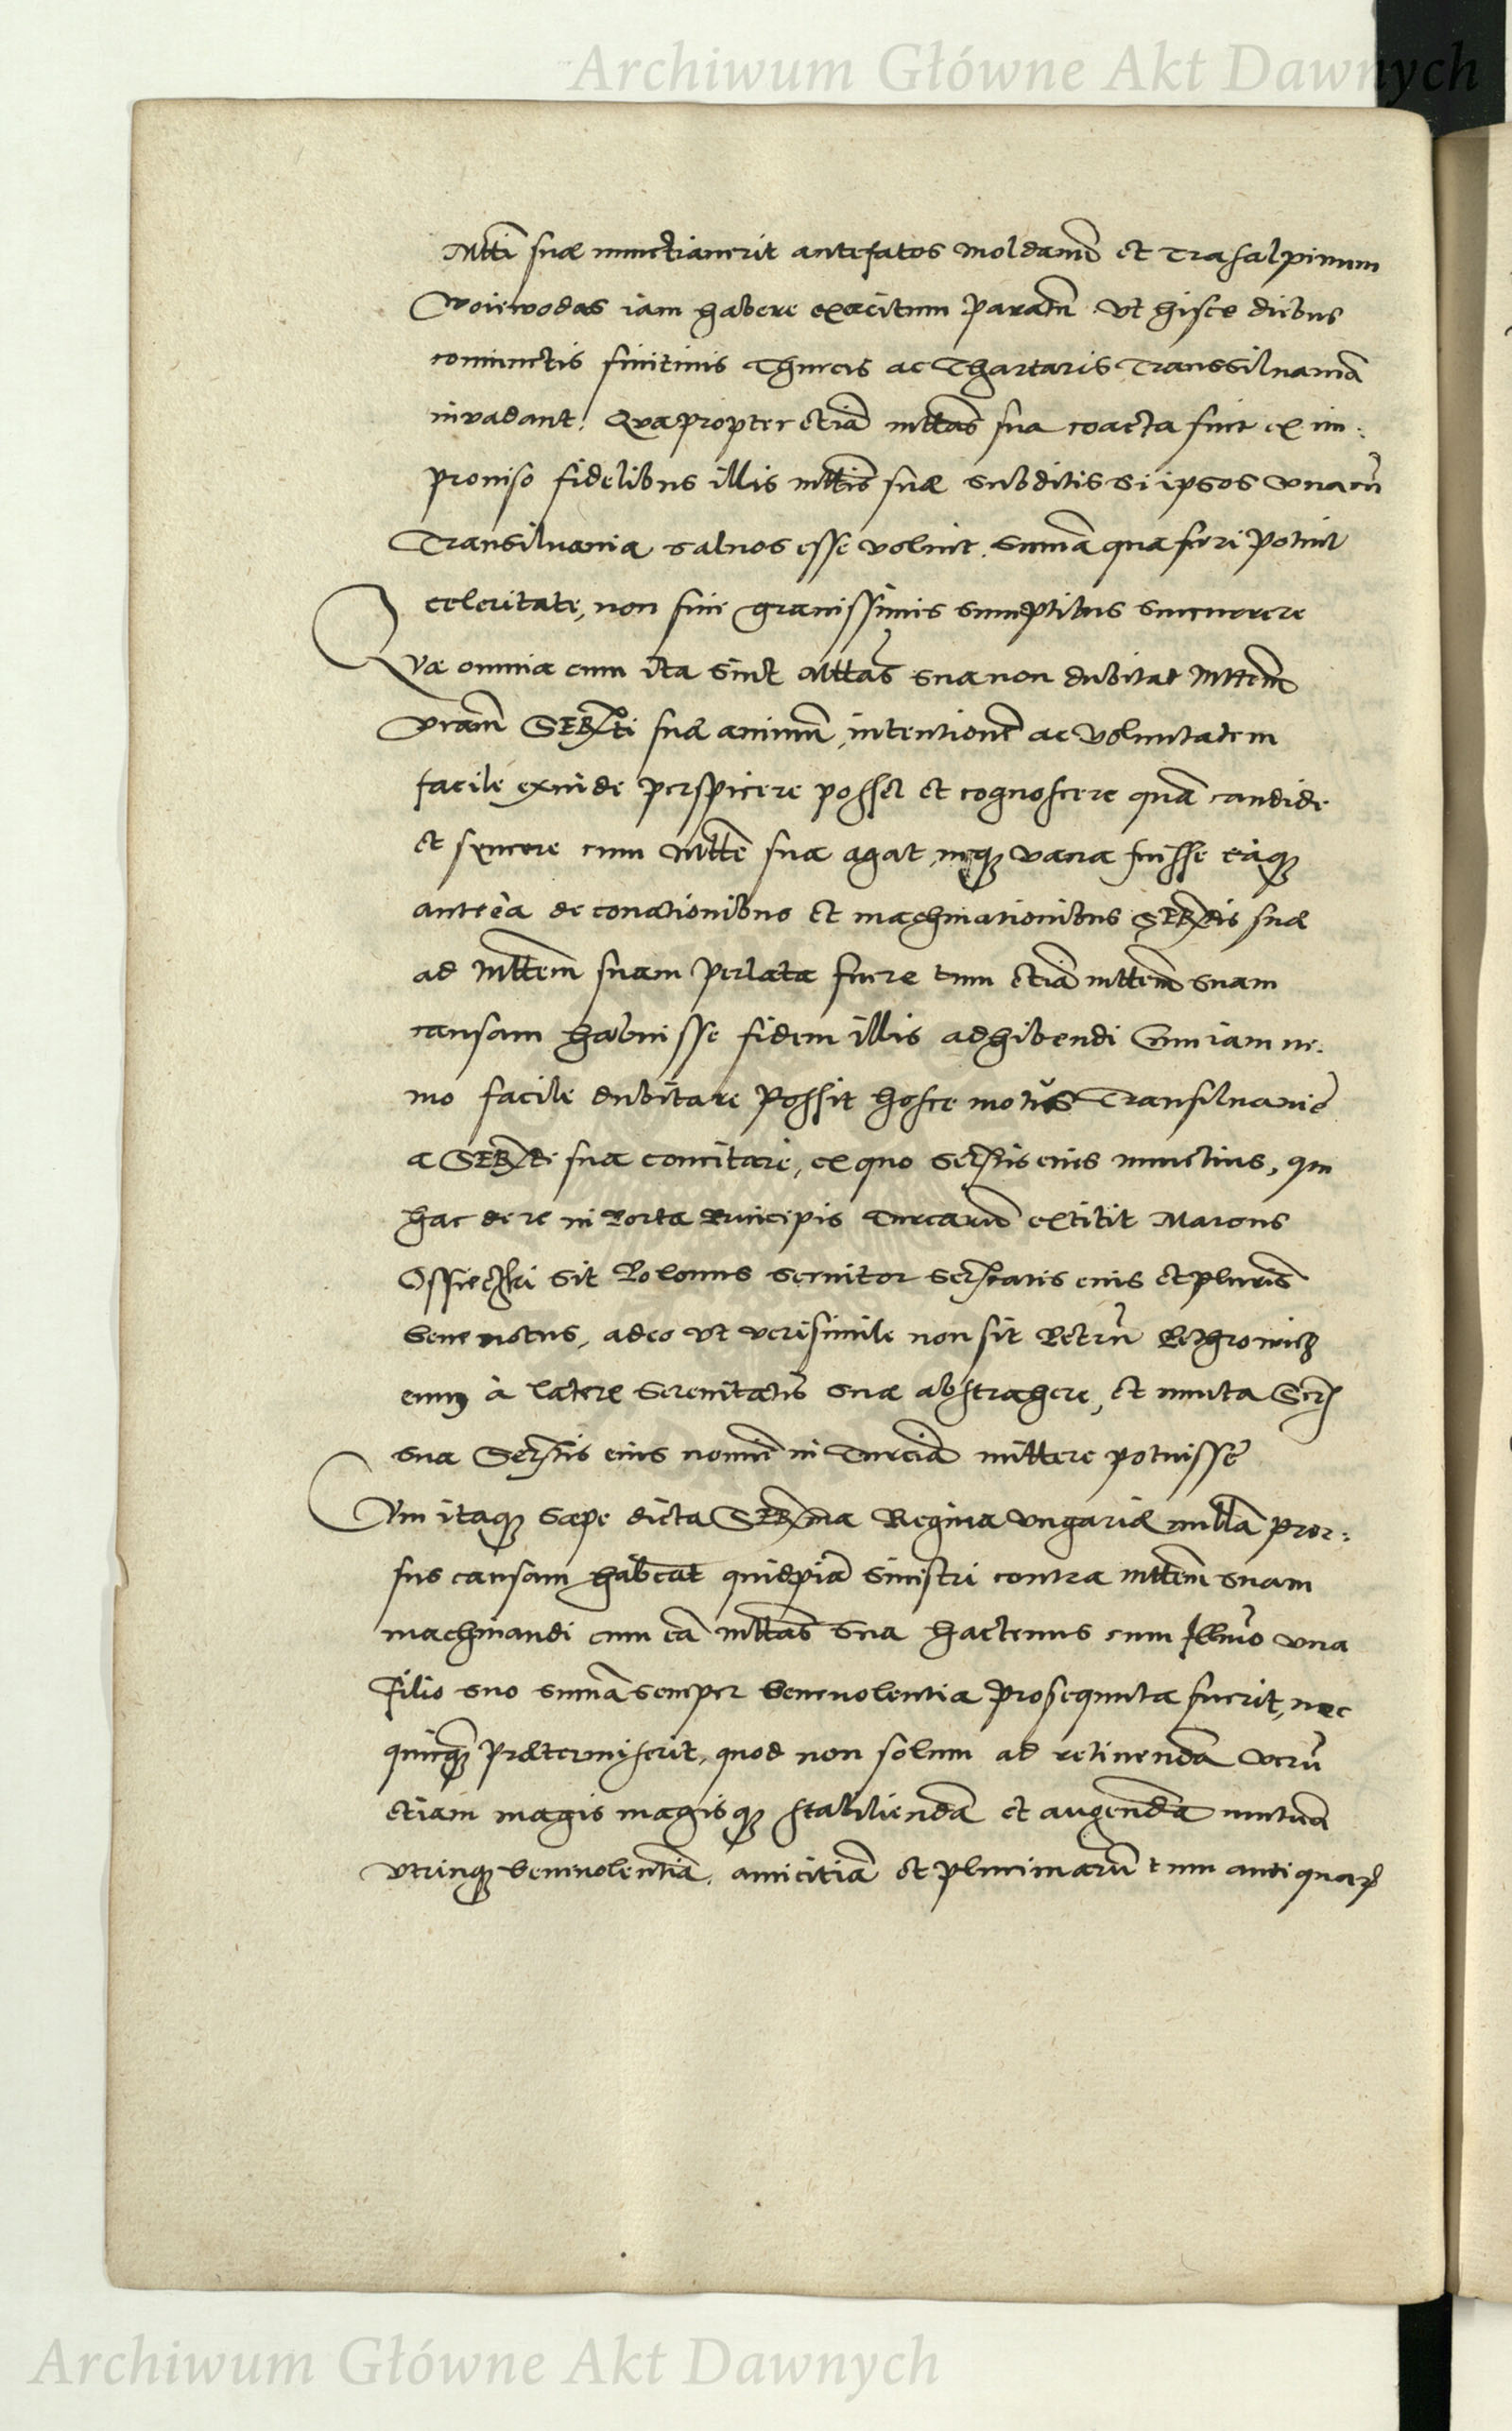 Archiwum Główne Akt Dawnych
Mtti suæ nunctiaverit antefatos Moldavũ et Trãsalpinum
Woiewodas iam habere exercitum paratũ ut hisce diebus
coniunctis finitimis Thurcis ac Thartaris Transsilvaniã
invadant. Quapropter etiã mttas sua coacta fuit ex im:
proviso fidelibus illis mttis suæ subditis si ipsos unacũ
Transilvania salvos esse voluit. summa qua fieri potuit
celeritate, non sine gravissimis sumptibus succurrere
Quæ omnia cum ita sint Mttas sua non dubitat Mttem
vram SERti suæ animũ, intentionẽ ac voluntatem
facile exinde perspicere posset et cognoscere quã candide
et syncere cum Mtte sua agat, neq vana fuisse eaq
anteà de conationibus et machinationibus SERtis suæ
ad Mttem suam perlata fuere tum etiã mttem suam
causam habuisse fidem illis adhibendi Cum iam ne:
mo facile dubitare possit hosce motus Transilvanie
a SERte sua concitari, ex quo Sertis eius nunctius, qui
hac de re in Porta Principis Turcarũ extitit Marcus
sit Polonus servitor Sertatis eius et pluris
bene notus, adeo ut verisimile non sit Petrũ
eum à latere Serenitatis suæ abstrahere, et invita Ser
sua Sertis eius nomine in Turciã mittere potuisse
Cum itaq sæpe dicta SERma Regina Ungariæ nullã pror:
sus causam habeat quidpiã sinistri contra mttem suam
machinandi cum eã mttas sua hactenus cum Illmo una
Filio suo summa semper benevolentia prosequuta fuerit, nec
quicq prætermiserit, quod non solum ad retinendã verũ
etiam magis magisq stabiliendã et augendã mutuã
utrinq benevolentiã, amicitiã et plurimarũ tum antiquar
Archiwum Główne Akt Dawnych